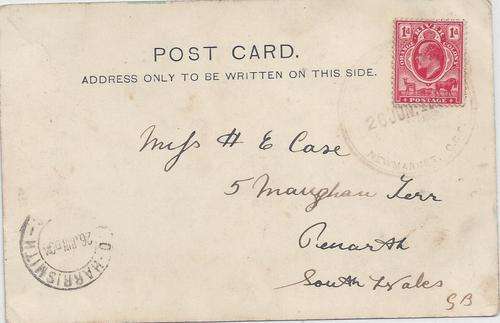 POST CARD.
ADDRESS ONLY TO BE WRITTEN ON THIS SIDE.
1d 1d
POSTAGE
26 JUN
NEWMARKET
Miss H E Case
5 Maughan Terr
Penarth
South Wales
GB
HARRISMITH
26 JUN